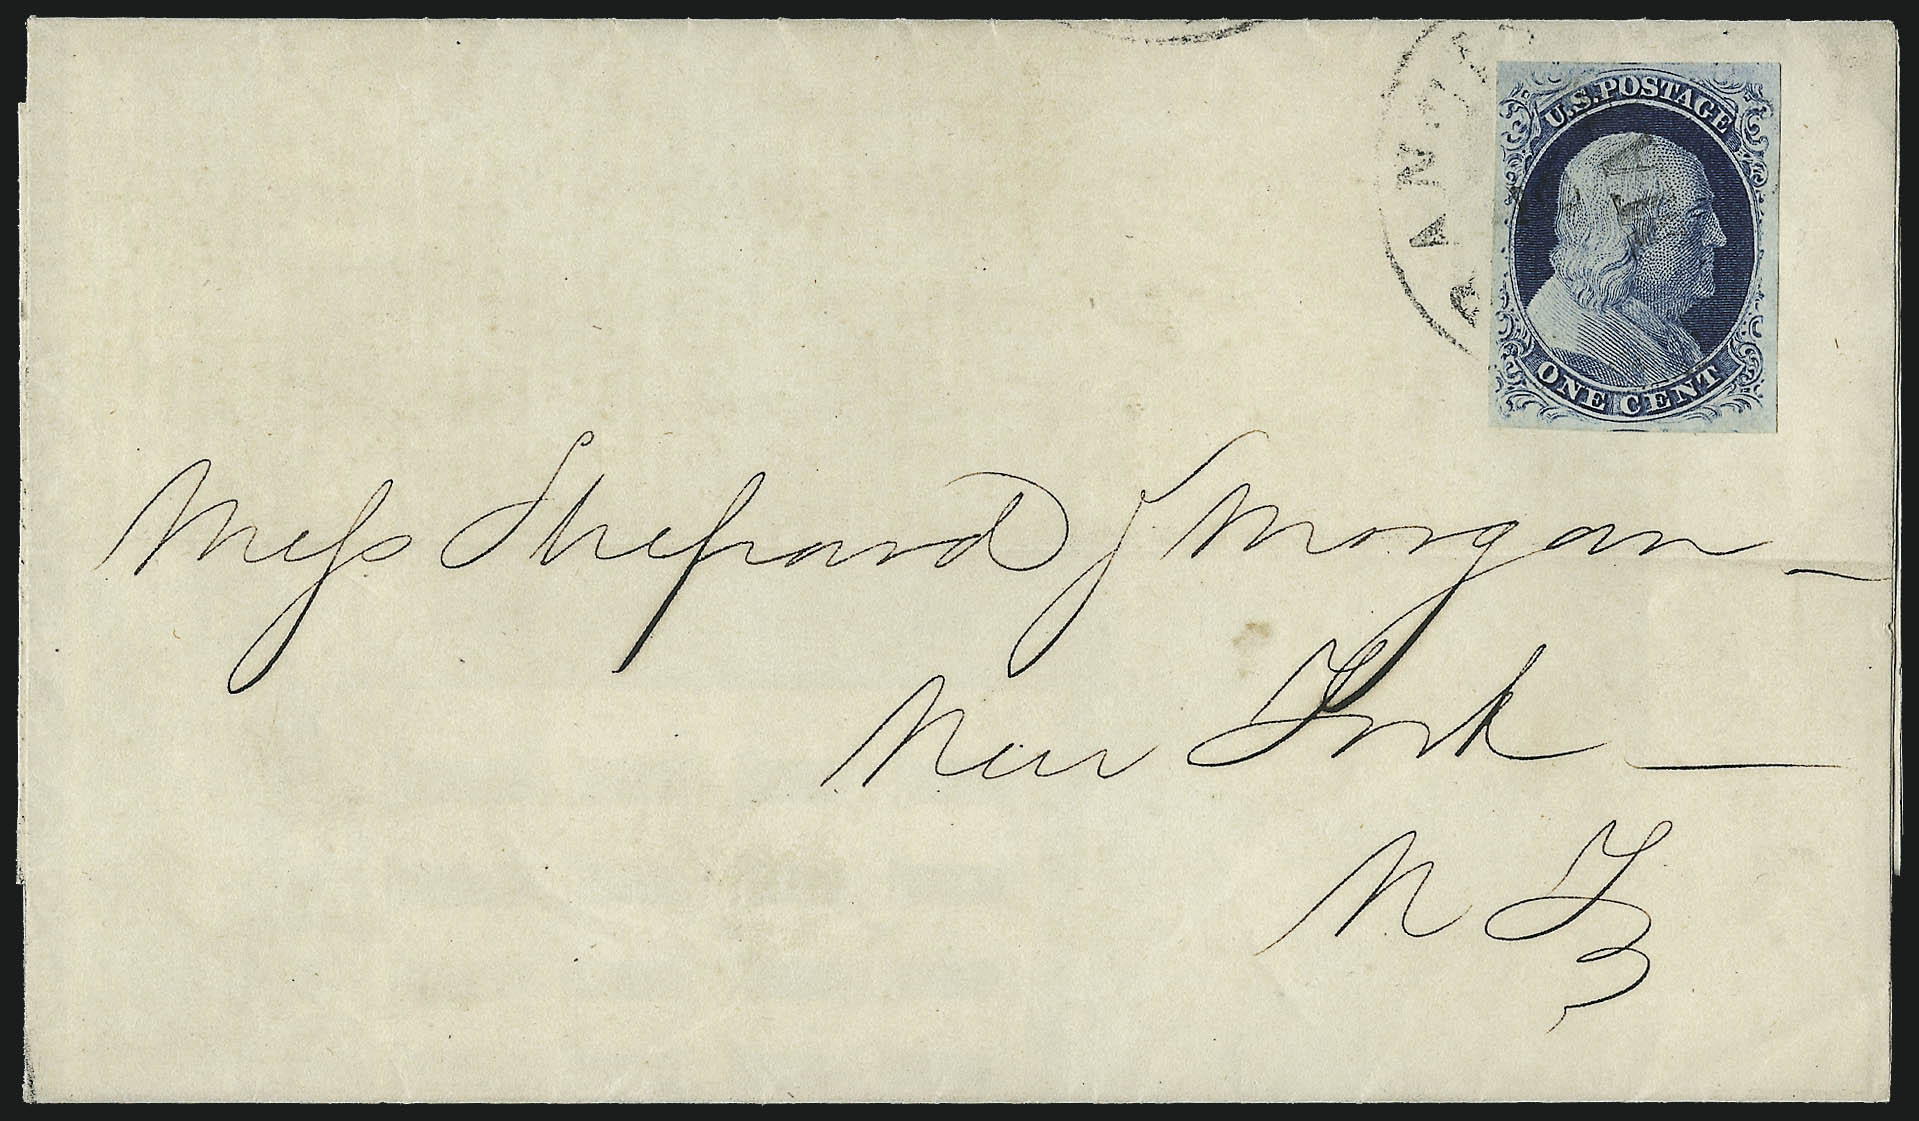 U.S. POSTAGE
ONE CENT
Mess Shepard & Morgan
New York
N Y